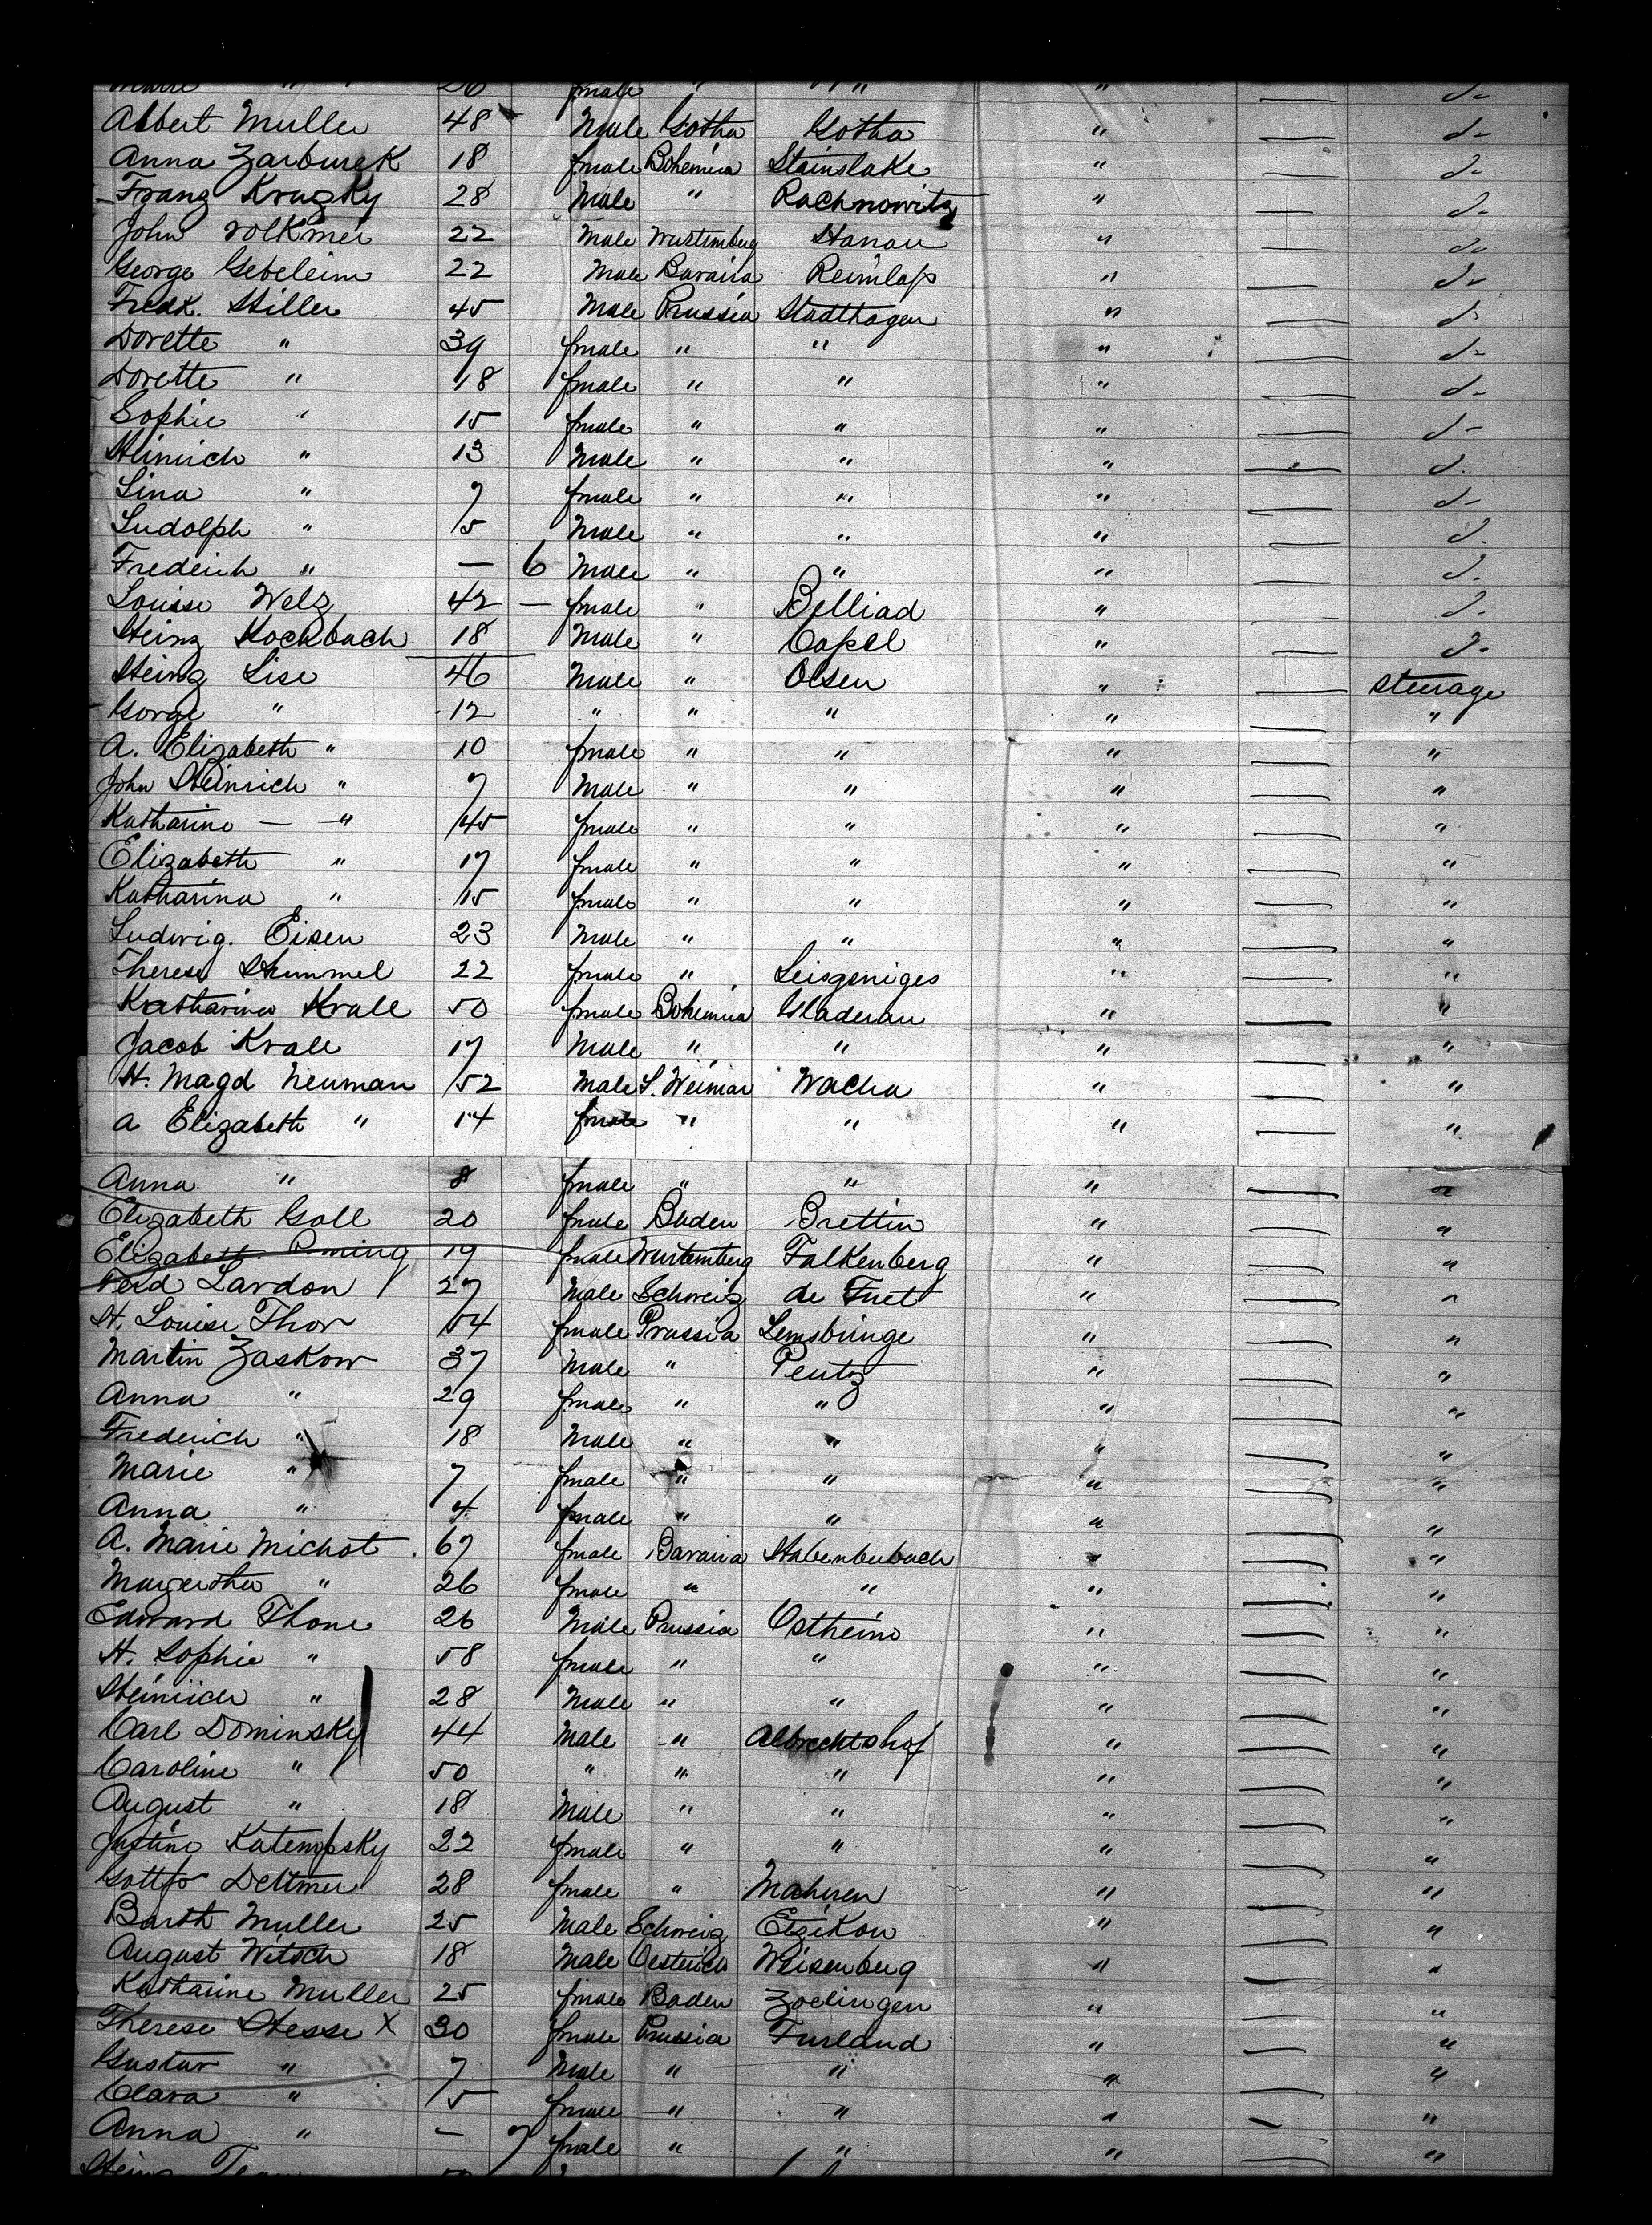 26 female " " " " d-
Albert Muller 48 Male Gotha Gotha " d-
Anna Zarburek 18 female Bohemia Stainslake " d-
Franz Kruzky 28 Male " Rachnowitz " d-
John Volkmer 22 Male Wurtemberg Hanau " do
George Gebelein 22 Male Bavaria Reimlaps " d-
Fredk. Hiller 45 Male Prussia Stadthagen " d-
Dorette " 39 female " " " d-
Dorette " 18 female " " " d-
Sophie " 15 female " " " d-
Heinrich " 13 Male " " " d.
Lina " 7 female " " " d-
Ludolph " 5 Male " " " d.
Frederich " — 6 Male " " " d.
Louise Welz 42 — female " Belliad " d-
Heinz Hochbach 18 Male " Capel " d-
Heinz Lise 46 Male " Olsen " Steerage
Gorge " 12 " " " " "
A. Elizabeth " 10 female " " " "
John Heinrich " 7 Male " " " "
Katharine — " 45 female " " " "
Elizabeth " 17 female " " " "
Katharina " 15 female " " " "
Ludwig. Eisen 23 Male " " " "
Therese Hummel 22 female " Leisgeniges " "
Katharina Krale 50 female Bohemia Gladerau " "
Jacob Krale 17 Male " " " "
H. Magd Neuman 52 Male S. Weimar Wacha " "
A Elizabeth " 14 female " " " "
Anna " 8 female " " " "
Elizabeth Goll 20 female Baden Brettin " "
Elizabeth 19 female Wurtemberg Falkenberg " "
Ferd Lardon 27 Male Schweiz de Fuet " "
H. Louise Thor 54 female Prussia Lemsbringe " "
Martin Zaskow 37 Male " Peutz " "
Anna " 29 female " " " "
Frederich " 18 Male " " " "
Marie " 7 female " " " "
Anna " 4 female " " " "
A. Marie Michot 67 female Bavaria Habenbubach " "
Margretha " 26 female " " " "
Edward Thone 26 Male Prussia Ostheim " "
H. Sophie " 58 female " " " "
Heinrich " 28 Male " " " "
Carl Dominsky 44 Male " Albrechtshof " "
Caroline " 50 " " " " "
August " 18 Male " " " "
Justine Katempsky 22 female " " " "
Gottfr Dettmer 28 female " Mahren " "
Barth Muller 25 Male Schweiz Etzikon " "
August Witsch 18 Male Oestrich Weisenberg " "
Katharine Muller 25 female Baden Zoelingen " "
Therese Hesse X 30 female Prussia Furland " "
Gustav " 7 Male " " " "
Clara " 5 female " " " "
Anna " — 7 female " " " "